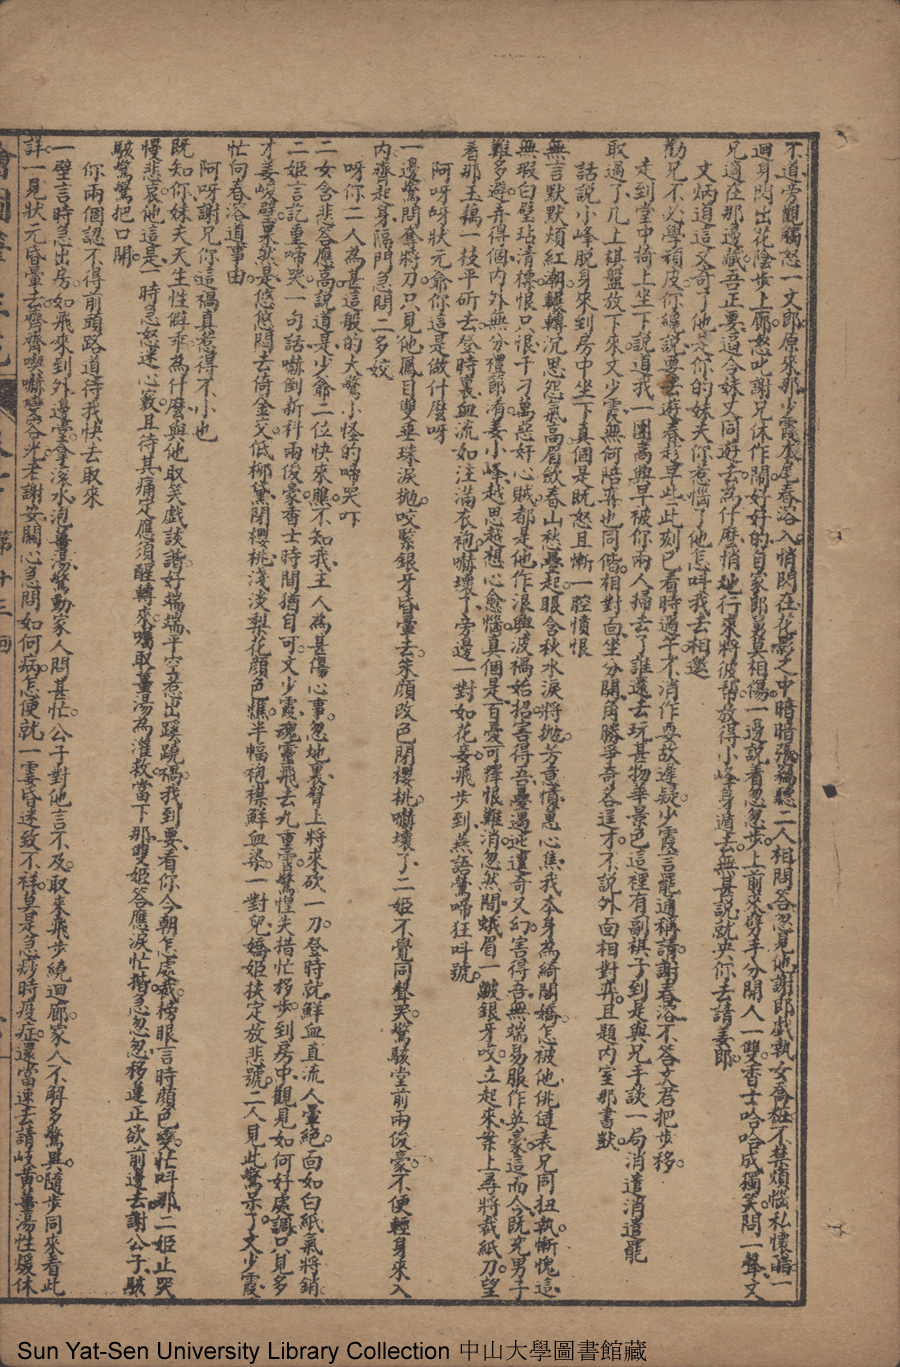 不道旁觀觸怒一文郎原來那少霞本是春浴入悄閃在花影之中暗暗張竊聽二人相問答忽見他謝郎戲執女喬粧不禁煩惱私懷一
迴身閃出花陰步上廊愁此謝兄休作鬧好好的自家郎舅莫相傷一邊說着忽忽步上前來劈手分開人一雙香士哈哈成獨笑問一聲文
兄適在那邊藏吾正要邀令妹丈同遊去為什麼悄地行來將彼幫放得小峰身遁去無甚說就央你去請姜郎
文炳道這又奇了他是你的妹夫你惹惱了他怎呌我去相邀
勸兄不必學頑皮你纔說要去遊春趁早些此刻已看時過午才消作要故遲疑少霞言罷通稱請謝春浴不答文君把步移
走到堂中椅上坐下說道我一團高興早被你兩人掃去了誰還去玩甚物華景色這裡有副棋子到是與兄手談一局消遣消遣罷
取過了几上棋盤放下來文少霞無何陪弈也同偕相對面坐分開角勝爭奇各逞才不說外面相對弈且題內室那書獃
話說小峰脫身來到房中坐下真個是既怒且慚一腔憤恨
無言默默煩紅潮輾轉沉思怨氣高眉歛春山愁疊起眼含秋水淚將拋芳意憤崽心焦我本身為綺閣嬌怎被他佻㒓表兄同扭執慚愧這
無瑕白璧玷清標恨只恨千刁萬惡奸心賊都是他作浪興波禍始招害得吾疊遇迍邅奇又幻害得吾無端易服作英豪這而今既充男子
難多避弄得個內外無分禮節淆姜小峰越思越想心愈惱真個是百憂可釋恨難消忽然間蛾眉一皺銀牙咬立起來案上再將裁紙刀望
着那玉藕一枝平斫去登時裏血流如注滿衣袍嚇壞了旁邊一對如花妾飛步到燕語鶯啼狂呌號
阿呀呀狀元爺你這是做什麼呀
一邊驚問奪將刀只見他鳳目雙垂珠淚拋咬緊銀牙昏暈去朱顏改色閉櫻桃嚇壞了二姬不覺同聲哭驚駭堂前兩俊豪不便輕身來入
內齊起身隔門急問二多姣
呀你二人為甚這般的大驚小怪的啼哭吓
二女含悲答應高說道是少爺二位快來瞧不知我主人為甚傷心事忽地裏臂上將來砍一刀登時就鮮血直流人暈絕面如白紙氣將銷
二姬言訖重啼哭一句話嚇倒新科兩俊豪香士時間猶自可文少霞魂靈飛去九重霄驚惶失措忙移步到房中觀見如何好處調只見多
才姜峻璧果然是悠悠悶去倚金交低柳黛閉櫻桃淺淡梨花顏色憔半幅袍襟鮮血染一對兒嬌姬扶定放悲號二人見此驚呆了文少霞
忙向春浴道事由
阿呀謝兄你這禍真惹得不小也
既知你妹夫天生性僻乖為什麼與他取笑戲談諧好端端平空惹出蹊蹺禍我到要看你今朝怎處裁榜眼言時顏色變忙呌那二姬止哭
慢悲哀他這是一時急怒迷心竅且待其痛定應須醒轉來囑取薑湯為灌救當下那雙姬答應淚忙揩急忽忽移蓮正欲前邊去謝公子駭
駭驚驚把口開
你兩個認不得前頭路道待我快去取來
一壁言時急出房如飛來到外邊堂拿滾水泡薑湯驚動家人問甚忙公子對他言不及取來飛步繞迴廊家人不解多驚異隨步同來看此
詳一見狀元昏暈去齊齊喫嚇變容光老謝安關心急問如何病怎便就一霎昏迷致不祥莫是急痧時疫症還當速去請岐黃薑湯性煖休
第十三回
Sun Yat-Sen University Library Collection 中山大學圖書館藏